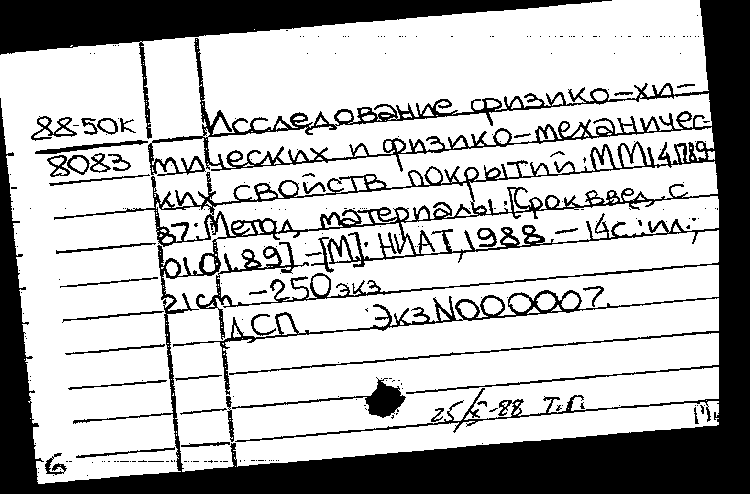 88-50к
8083
Исследование физико-хи-
мических и физико-механичес-
ких свойств покрытий: ММ1.4.1789-
87: Метал. материалы: [Срок введ. с
01.01.89] - [М]: НИАТ, 1988. - 14с.: ил.;
21см. - 250экз.
ДСП. Экз.N000007.
25/X-88 Т.П.
М.
6